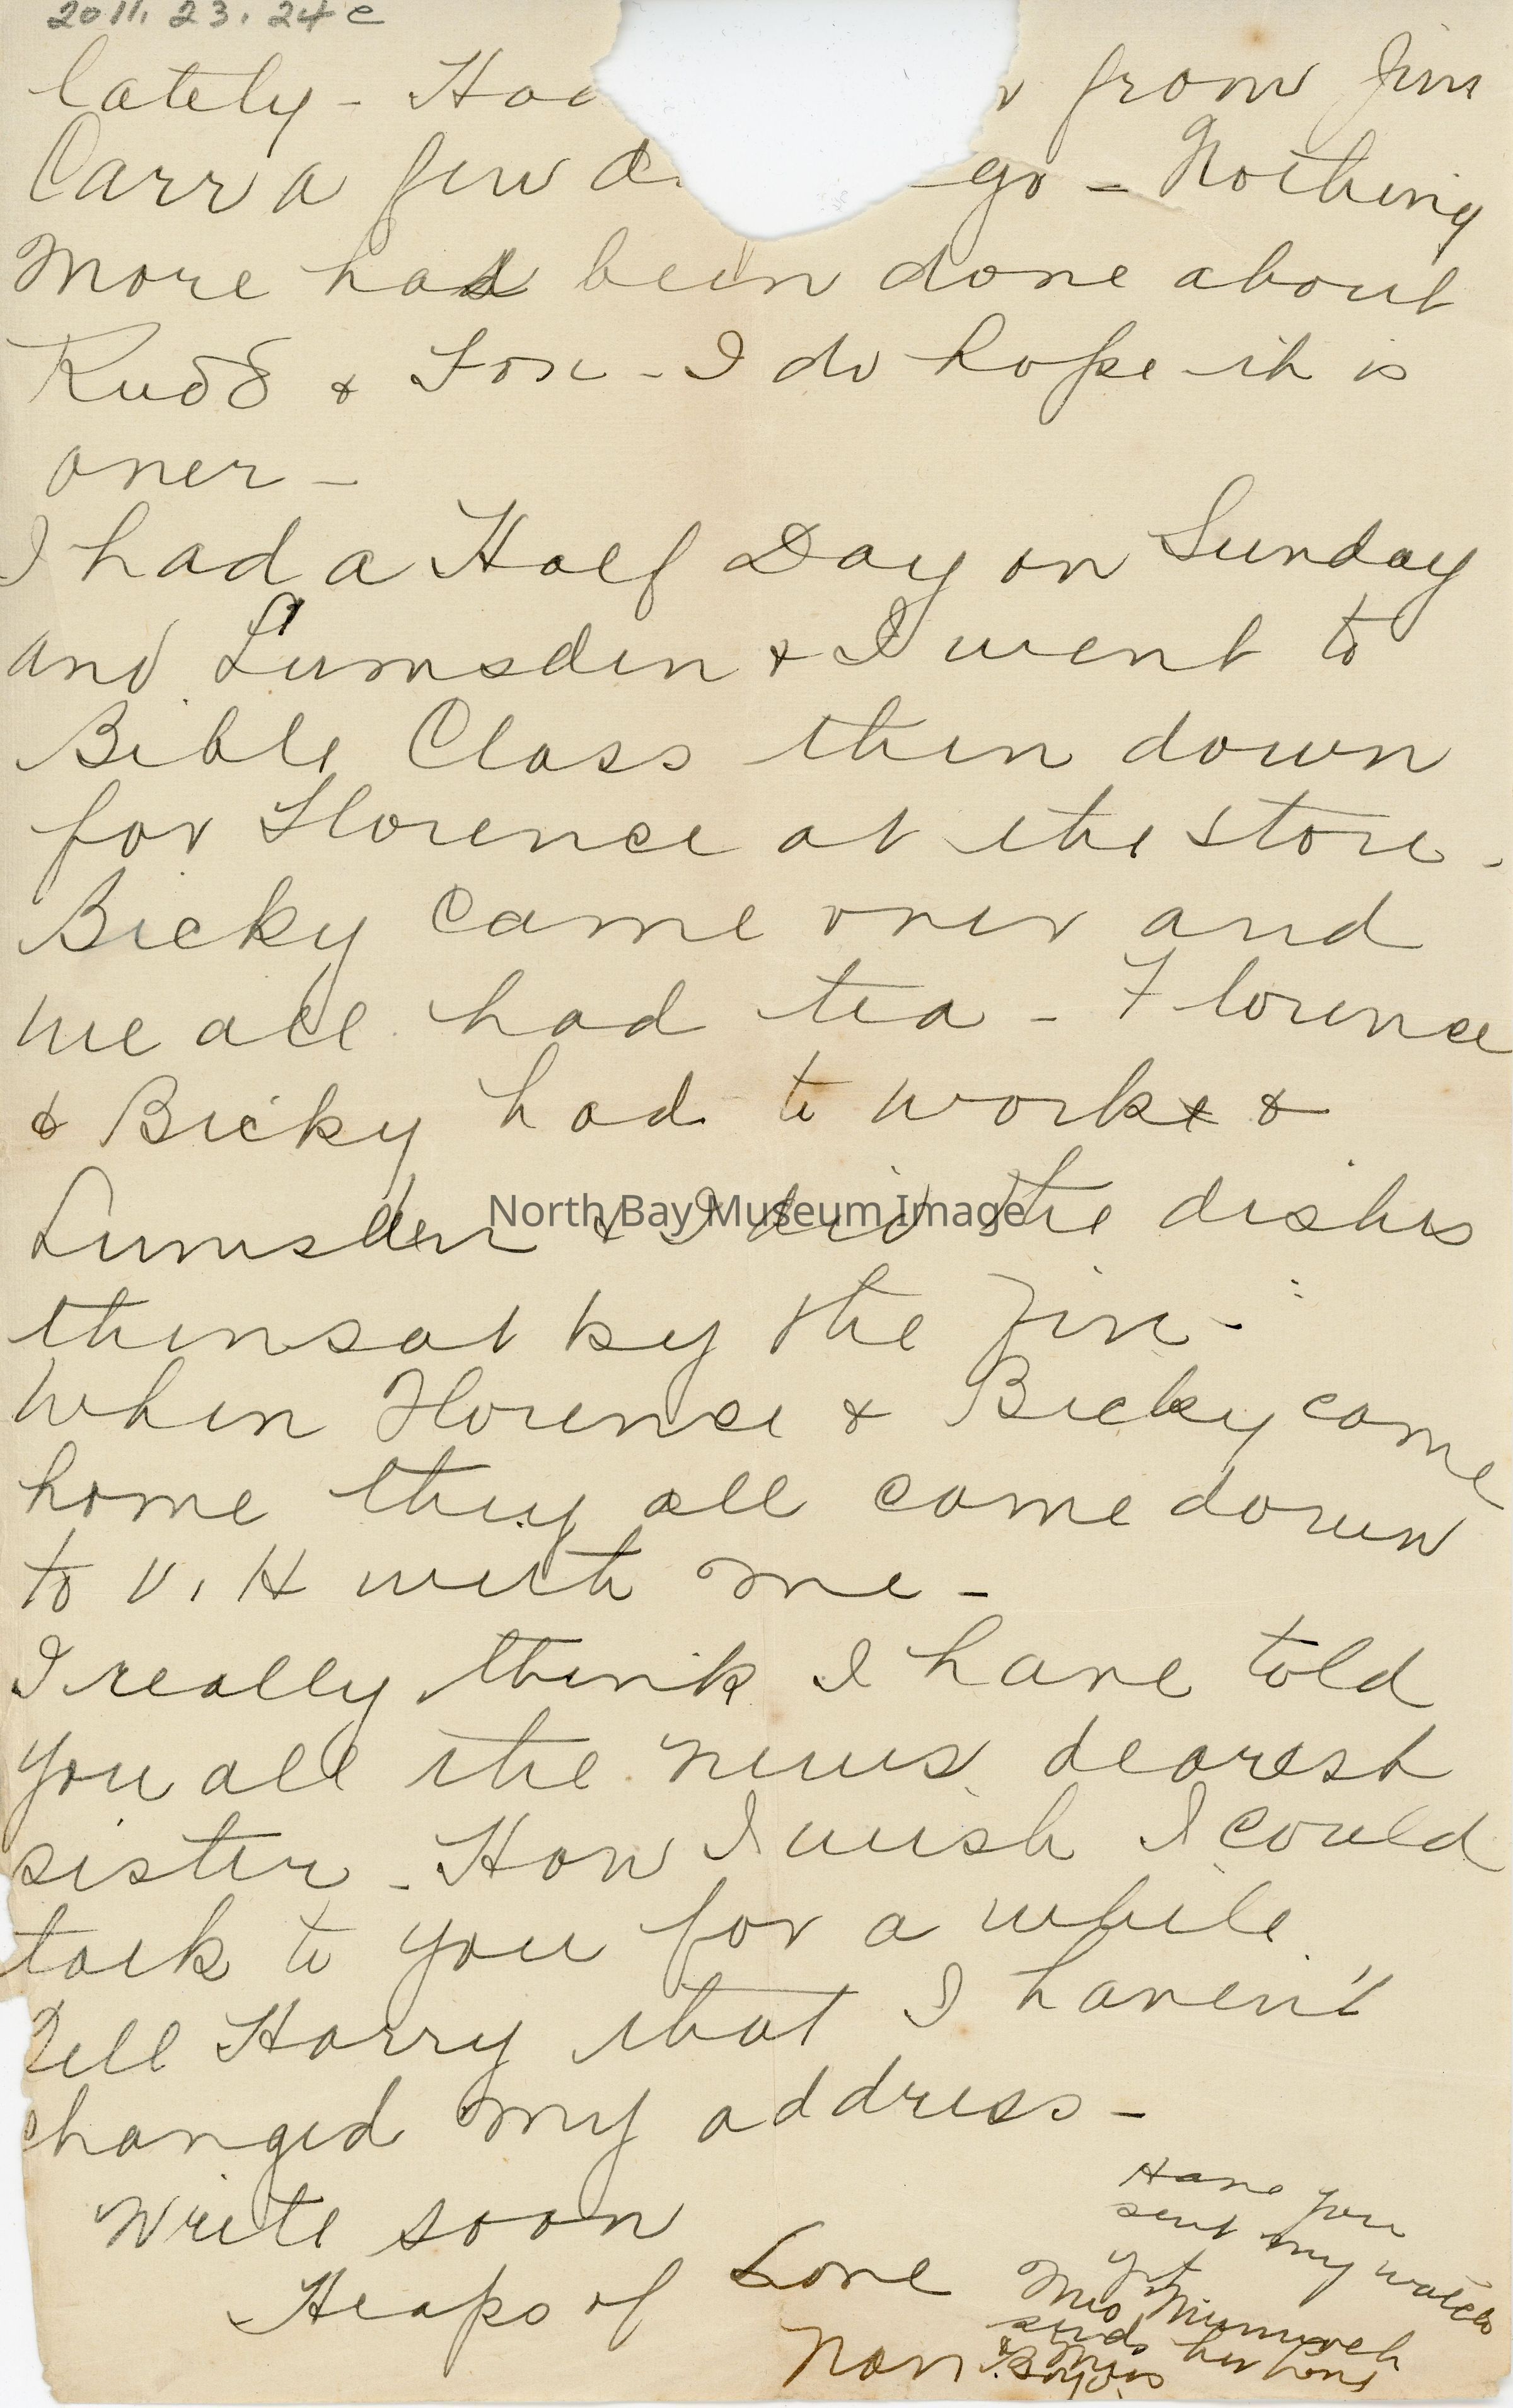 2011. 23. 24 e
lately - Had from Jim
Carr a few d go - Nothing
More had been done about
Rudd & Fox - I do hope it is
over -
I had a Half Day on Sunday
and Lumsden & I went to
Bible Class then down
for Florence at the store.
Bicky came over and
we all had tea - Florence
& Bicky had to work &
Lumsden & I did the dishes
then sat by the fire -
When Florence & Bicky came
home they all came down
to V. H with me -
I really think I have told
you all the news dearest
sister - How I wish I could
talk to you for a while
Tell Harry that I haven't
changed my address -
Write soon
Heaps of Love
Nan
Have you
sent my watch
yet
Mrs
sends her love
North Bay Museum Image